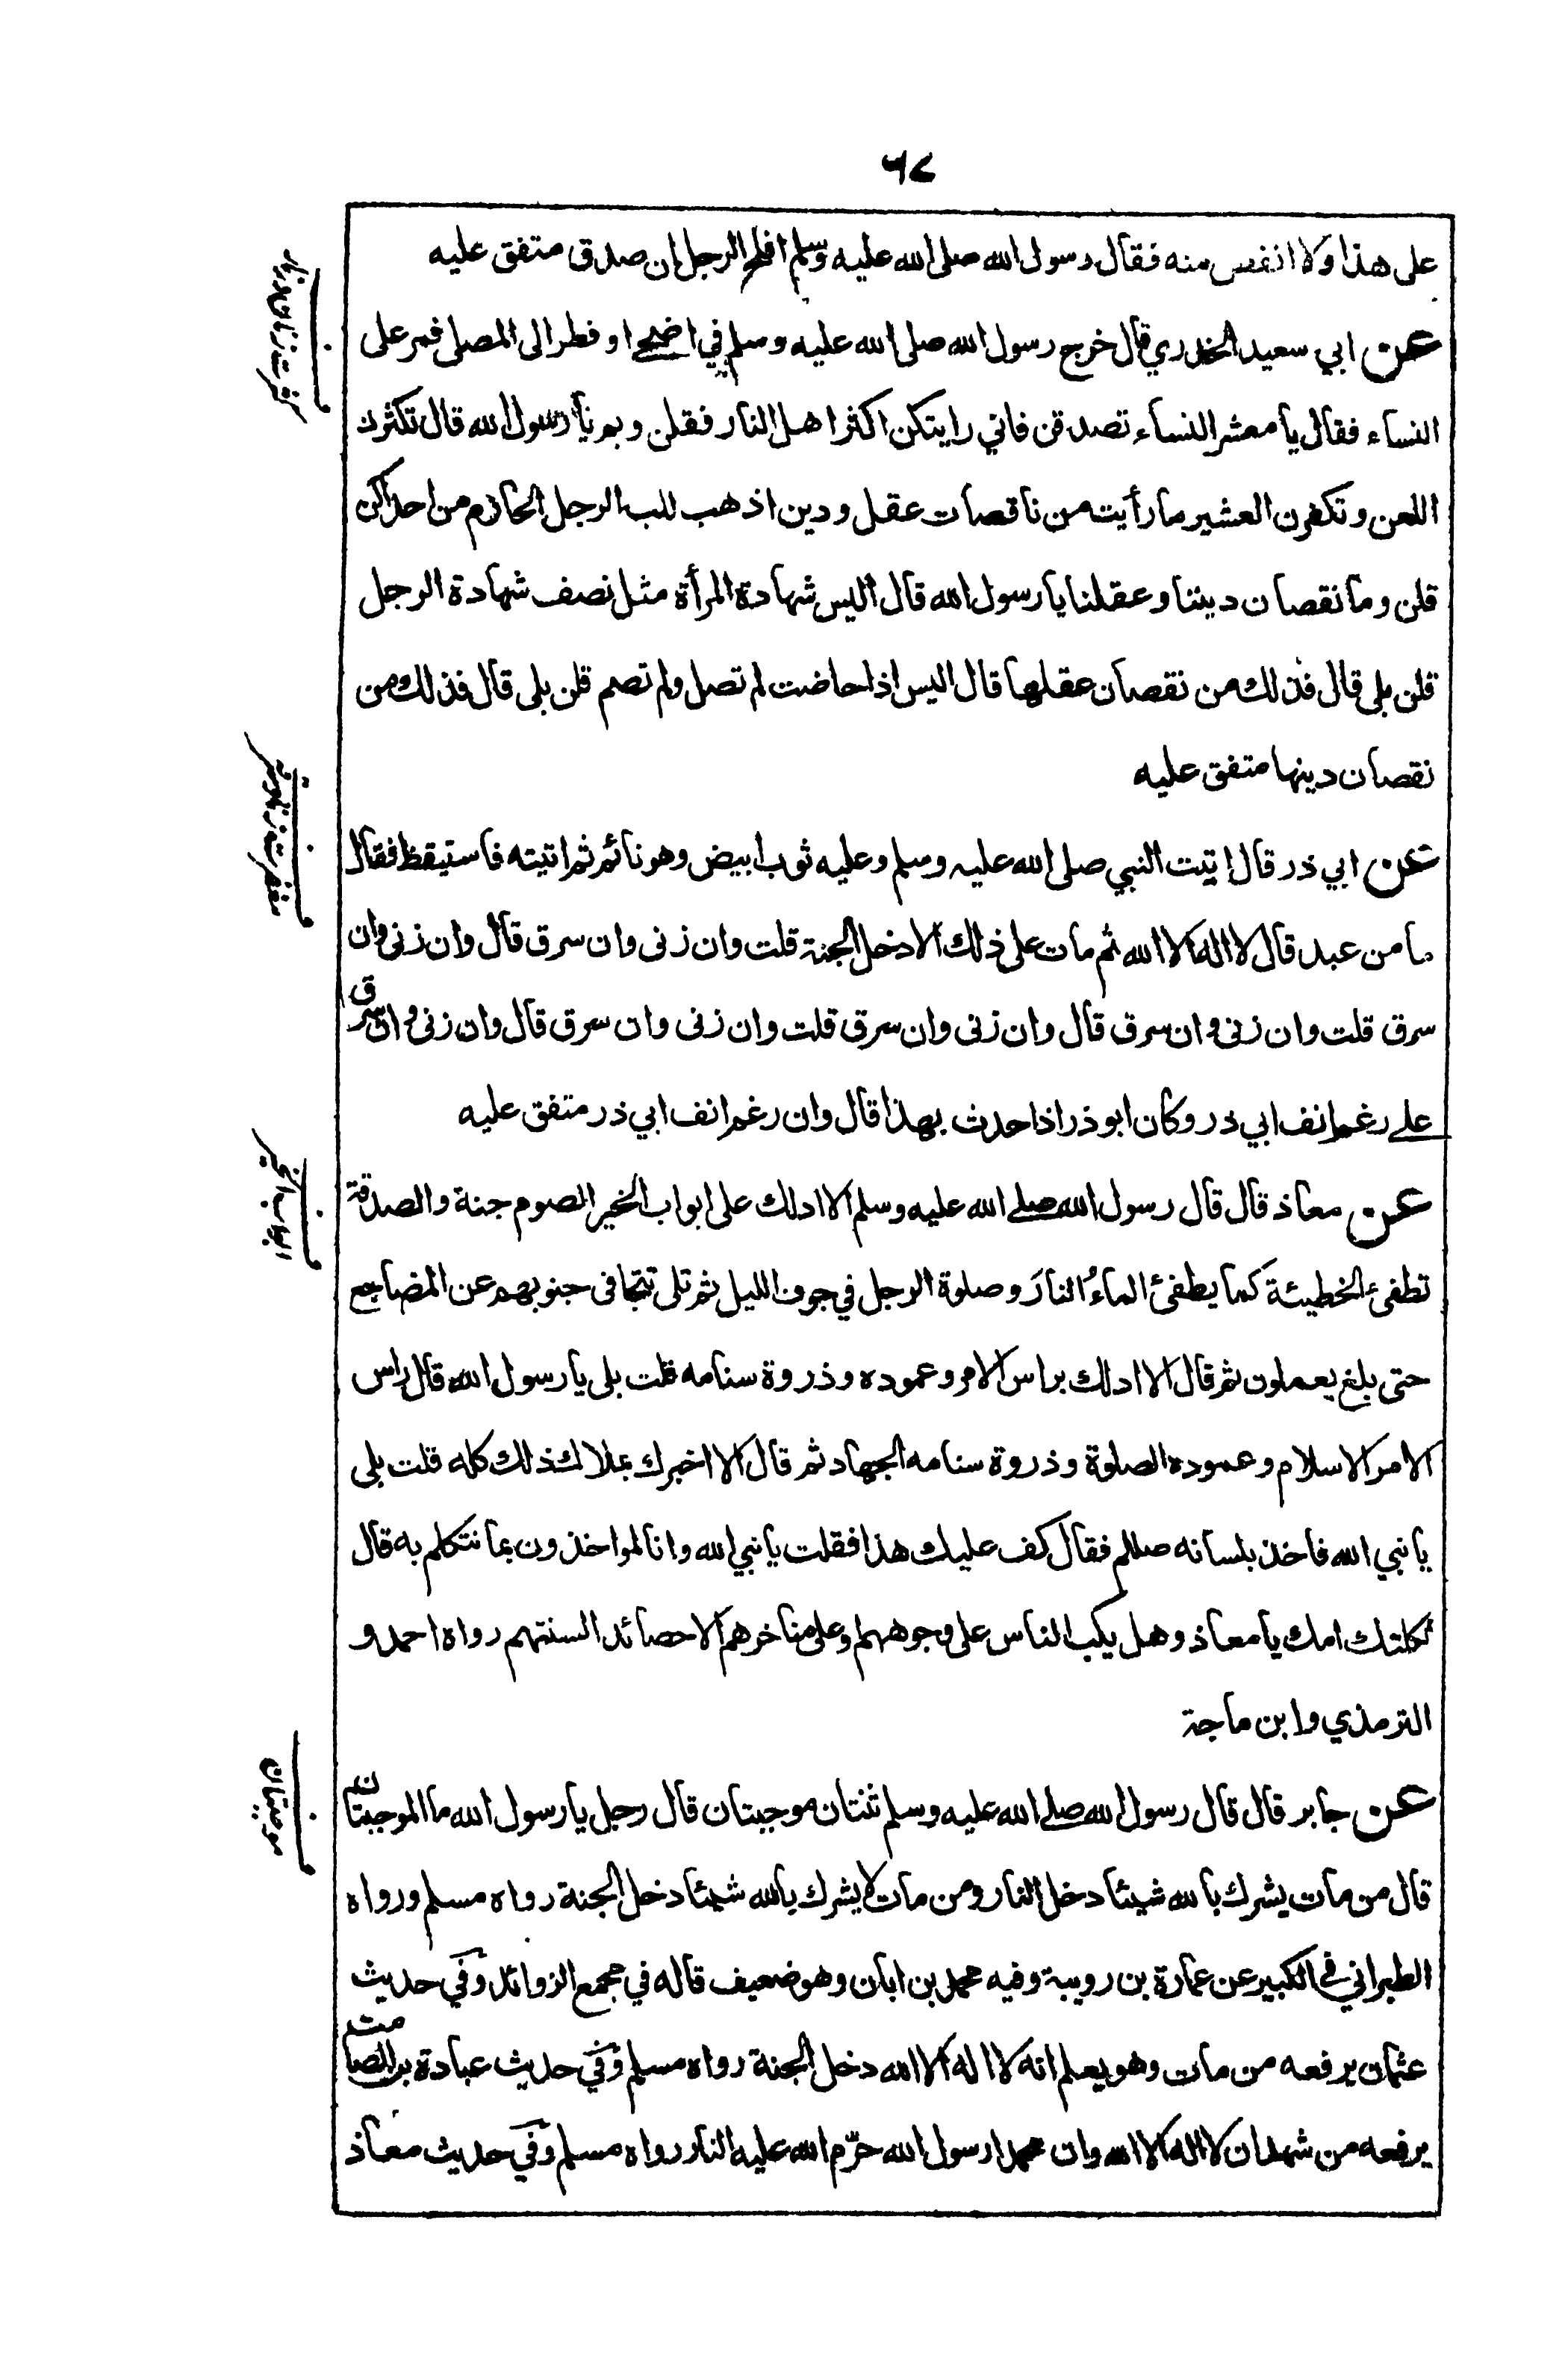 ٦٧
على هذا ولا انقص منه فقال رسول الله صلى الله عليه وسلم افلح الرجل ان صدق متفق عليه
عن ابي سعيد الخدري قال خرج رسول الله صلى الله عليه وسلم في اضحى او فطر الى المصلى فمر على
النساء فقال يا معشر النساء تصدقن فاني رايتكن اكثر اهل النار فقلن وبم يا رسول الله قال تكثرن
اللعن وتكفرن العشير ما رأيت من ناقصات عقل ودين اذهب للب الرجل الحازم من احداكن
قلن وما نقصان ديننا وعقلنا يا رسول الله قال اليس شهادة المرأة مثل نصف شهادة الرجل
قلن بلى قال فذلك من نقصان عقلها قال اليس اذا حاضت لم تصل ولم تصم قلن بلى قال فذلك من
نقصان دينها متفق عليه
عن ابي ذر قال اتيت النبي صلى الله عليه وسلم وعليه ثوب ابيض وهو نائم ثم اتيته فاستيقظ فقال
ما من عبد قال لا اله الا الله ثم مات على ذلك الا دخل الجنة قلت وان زنى وان سرق قال وان زنى وان
سرق قلت وان زنى وان سرق قال وان زنى وان سرق قلت وان زنى وان سرق قال وان زنى وان سرق
على رغم انف ابي ذر وكان ابو ذر اذا حدث بهذا قال وان رغم انف ابي ذر متفق عليه
عن معاذ قال قال رسول الله صلى الله عليه وسلم الا ادلك على ابواب الخير الصوم جنة والصدقة
تطفئ الخطيئةَ كما يطفئ الماءُ النارَ وصلوة الرجل في جوف الليل ثم تلى تتجافى جنوبهم عن المضاجع
حتى بلغ يعملون ثم قال الا ادلك براس الامر وعموده وذروة سنامه قلت بلى يا رسول الله قال راس
الامر الاسلام وعموده الصلوة وذروة سنامه الجهاد ثم قال الا اخبرك بملاك ذلك كله قلت بلى
يا نبي الله فاخذ بلسانه صللم فقال كف عليك هذا فقلت يا نبي الله وانا لمواخذون بما نتكلم به قال
ثكلتك امك يا معاذ وهل يكب الناس على وجوههم وعلى مناخرهم الا حصائد السنتهم رواه احمد و
الترمذي وابن ماجة
عن جابر قال قال رسول الله صلى الله عليه وسلم ثنتان موجبتان قال رجل يا رسول الله ما الموجبتان
قال من مات يشرك بالله شيئا دخل النار ومن مات لا يشرك بالله شيئا دخل الجنة رواه مسلم ورواه
الطبراني في الكبير عن عمارة بن رويبة وفيه محمد بن ابان وهو ضعيف قاله في مجمع الزوائد وفي حديث
عثمان يرفعه من مات وهو يعلم انه لا اله الا الله دخل الجنة رواه مسلم وفي حديث عبادة بن الصامت
يرفعه من شهد ان لا اله الا الله وان محمدا رسول الله حرّم الله عليه النار رواه مسلم وفي حديث معاذ
ابواب الخير
موجبتان